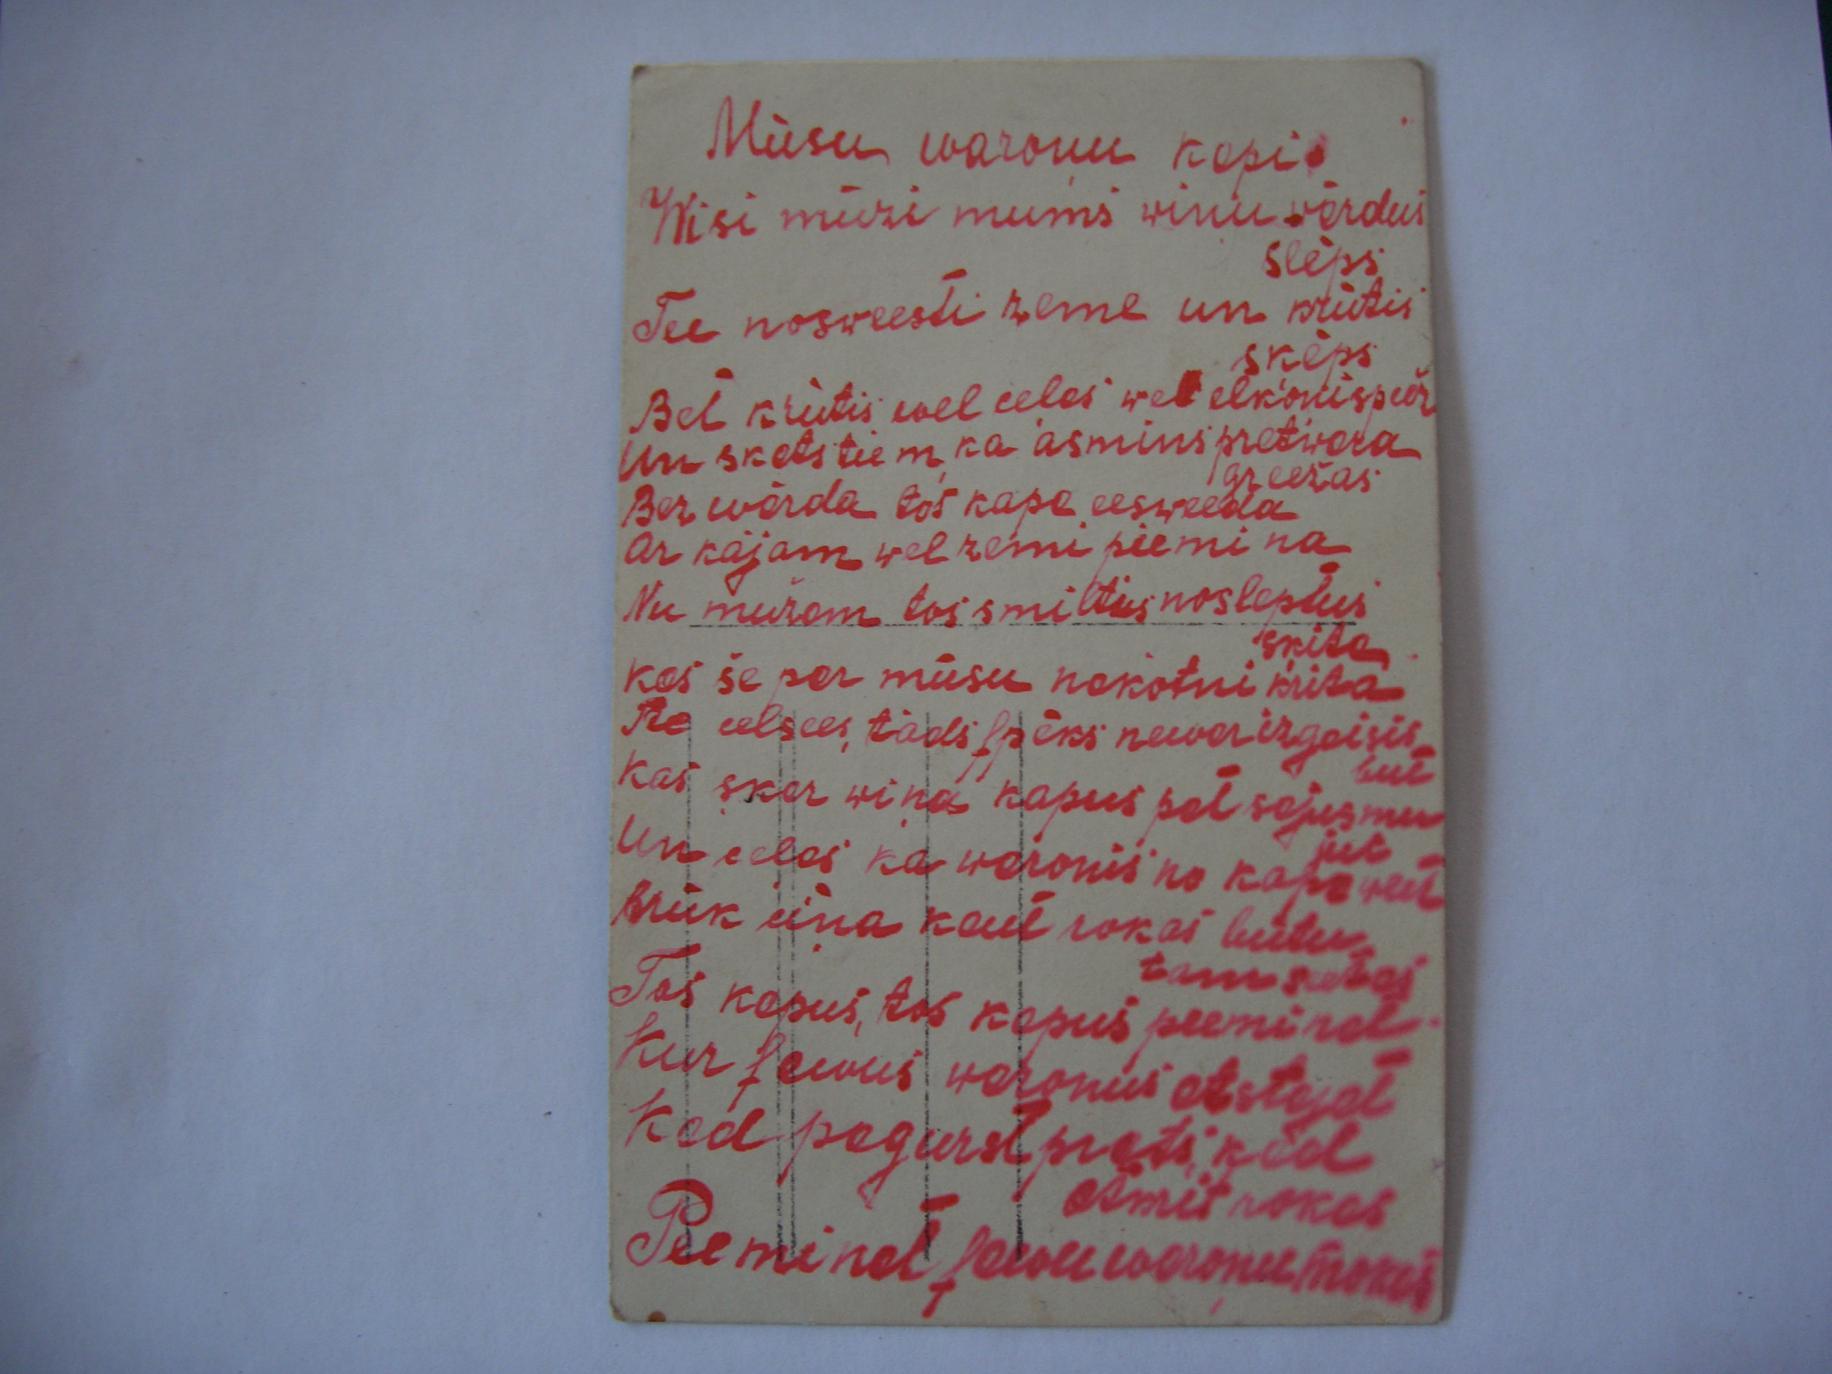 Mūsu waroņu kapi.
Wisi mūži mums wiņu wārdus
slēps
Tee noswēesti zeme un krūtis
skēps
Bet krūtis wel eelas wel elkonis
Un skats tiem, ka asmins pret wara
greežas
Bez wārda tos kapa eesweeda
ar kājam wel zemi piemina
Nu mūžam tos smiltus noslēptus
skita
kas še par mūsu nakotni krita
Tee eelsees, tāds spēks newar izgaisis
but
Kas skar wiņa kapus pat sajusmu
jut
Un eelas kā waronis no kapa
Trūk eiņa kaut rokas butu
tam
Tos kapus, tos kapus peeminat
Kur sawus waroņus atstajat
Kad pagurst prats, kad
atmirt rokas
Peeminat sawu waroņu mokas